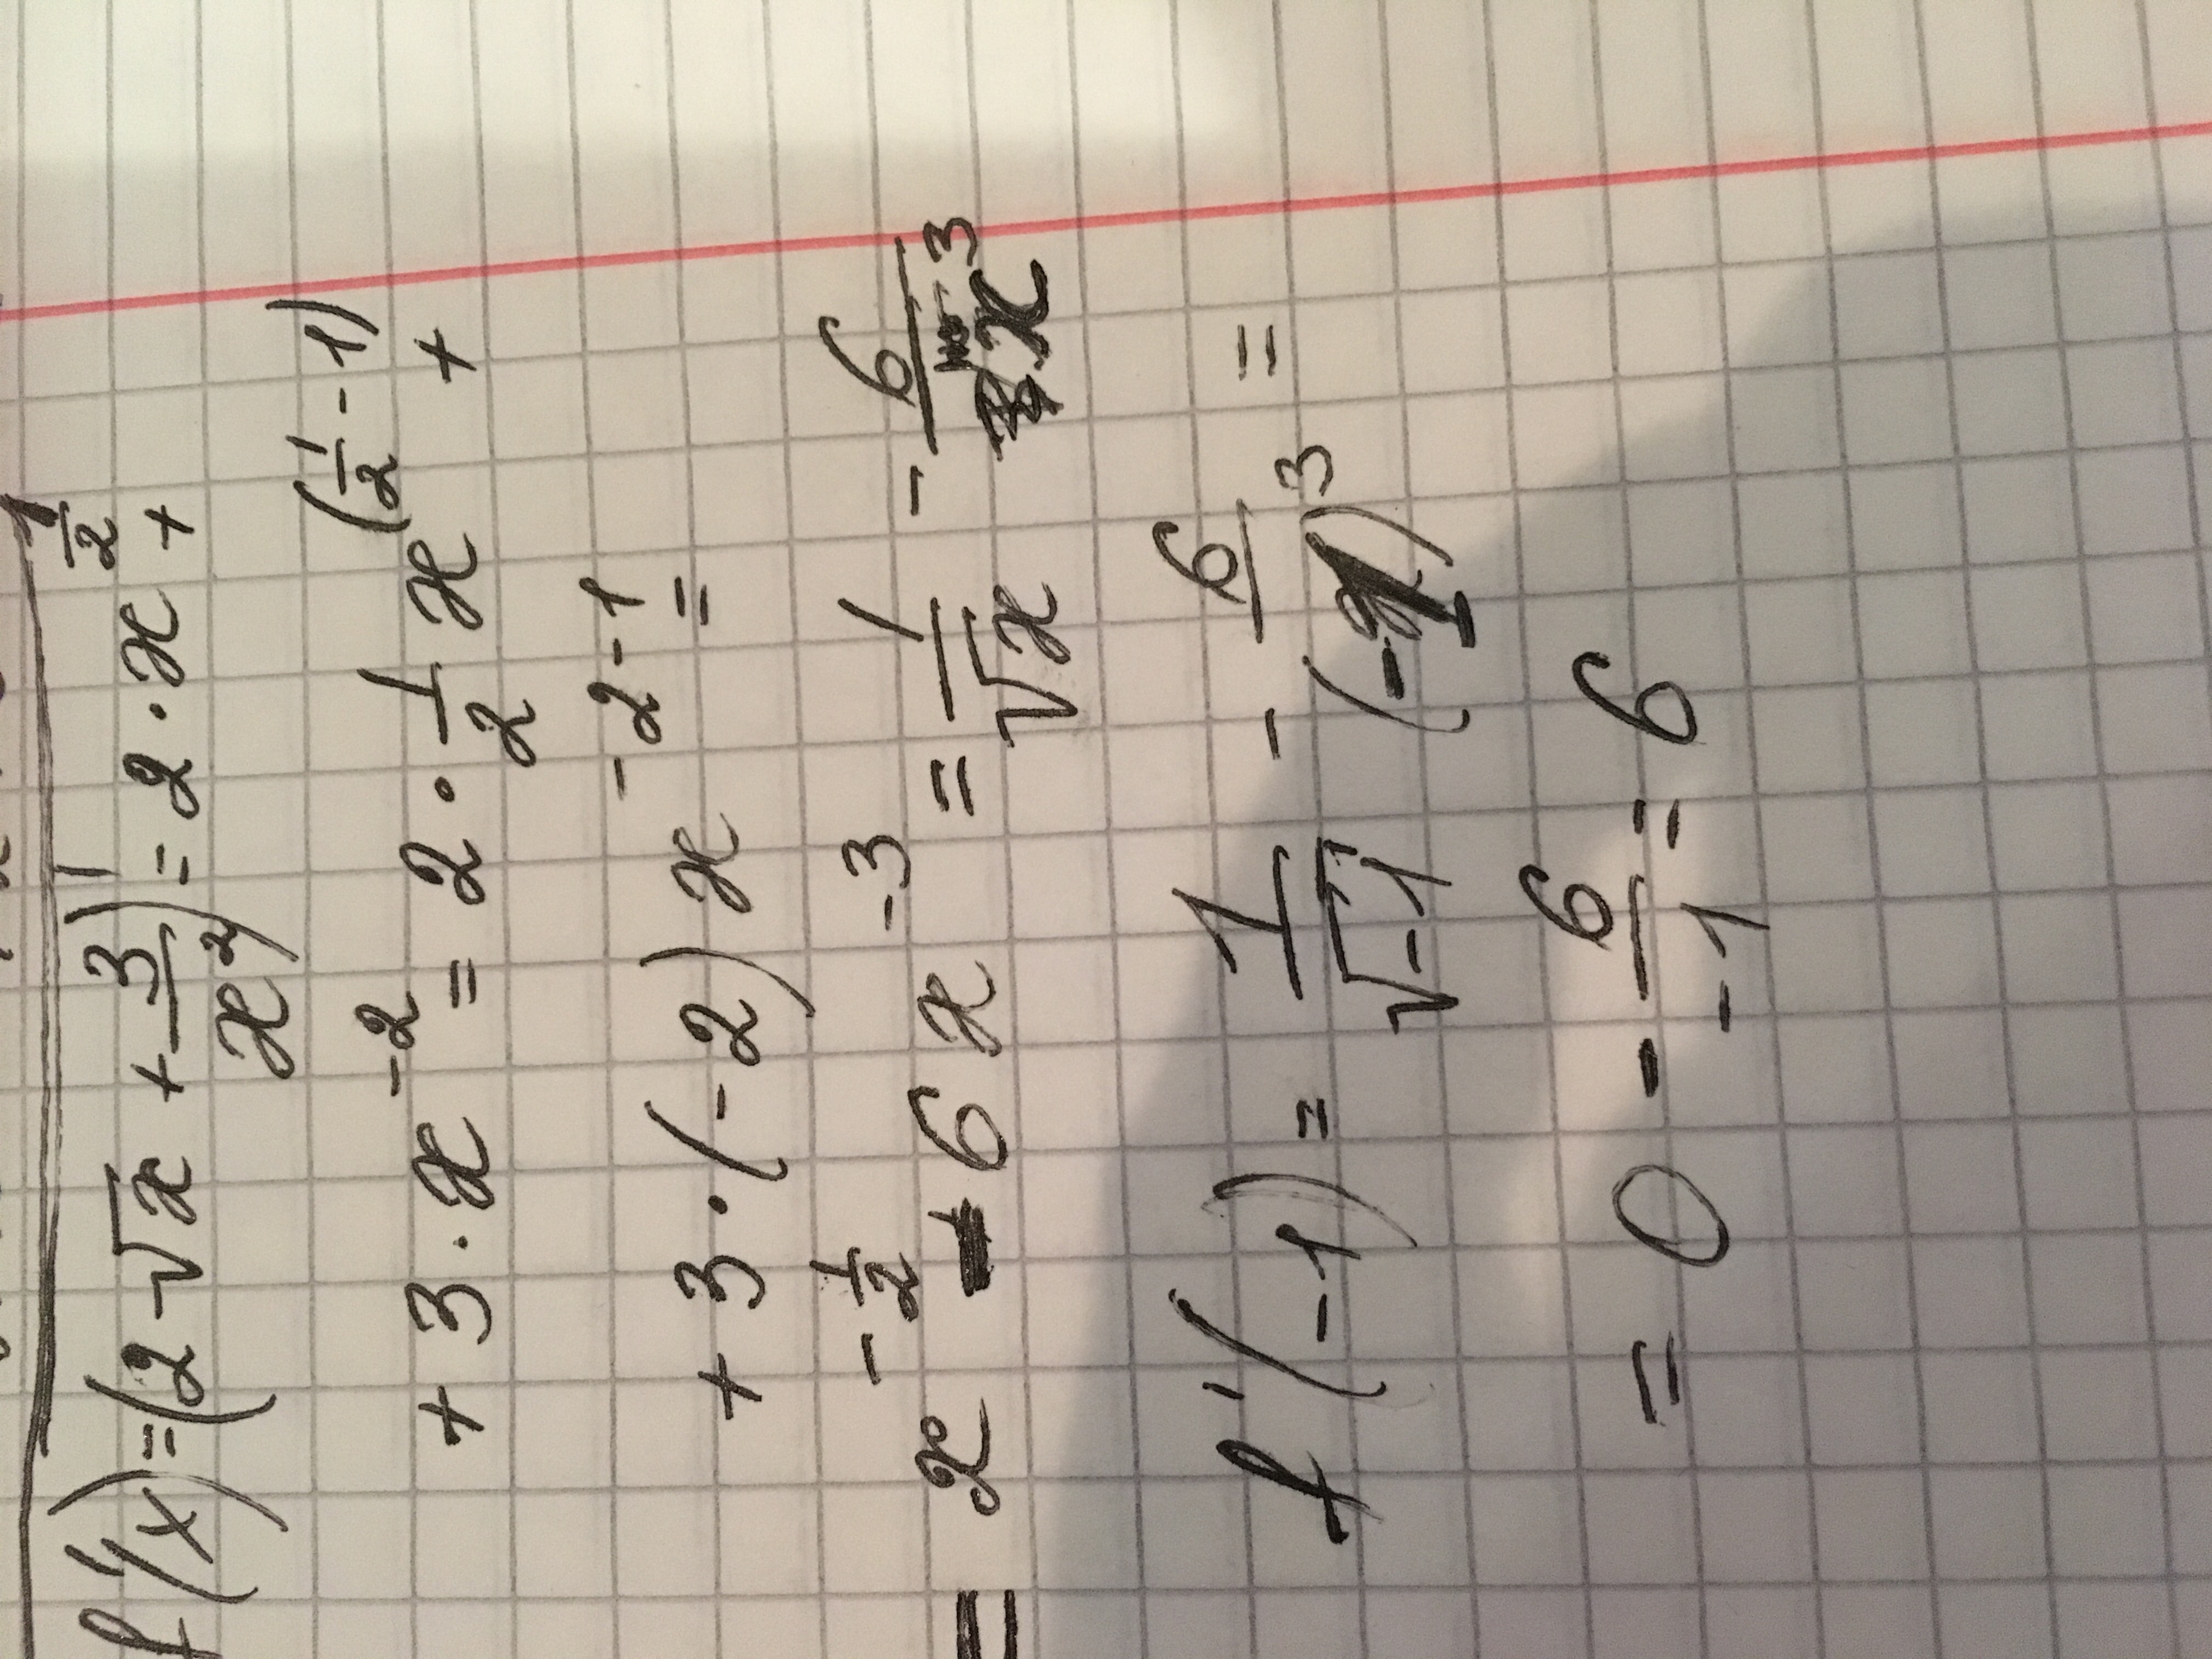 f'(x)=(2√x + 3/x²)' = 2·x^(1/2) +
+ 3·x^(-2) = 2·1/2 x^(1/2 - 1) +
+ 3·(-2) x^(-2-1) =
= x^(-1/2) - 6x^(-3) = 1/√x - 6/x³
f'(-1) = 1/√-1 - 6/(-1)³ =
= 0 - 6/-1 = 6